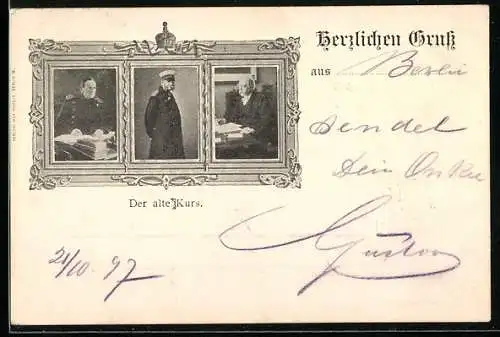 Herzlichen Gruß
aus Berlin
sendet
Dein Onkel
Gustav
Der alte Kurs.
21/10. 97